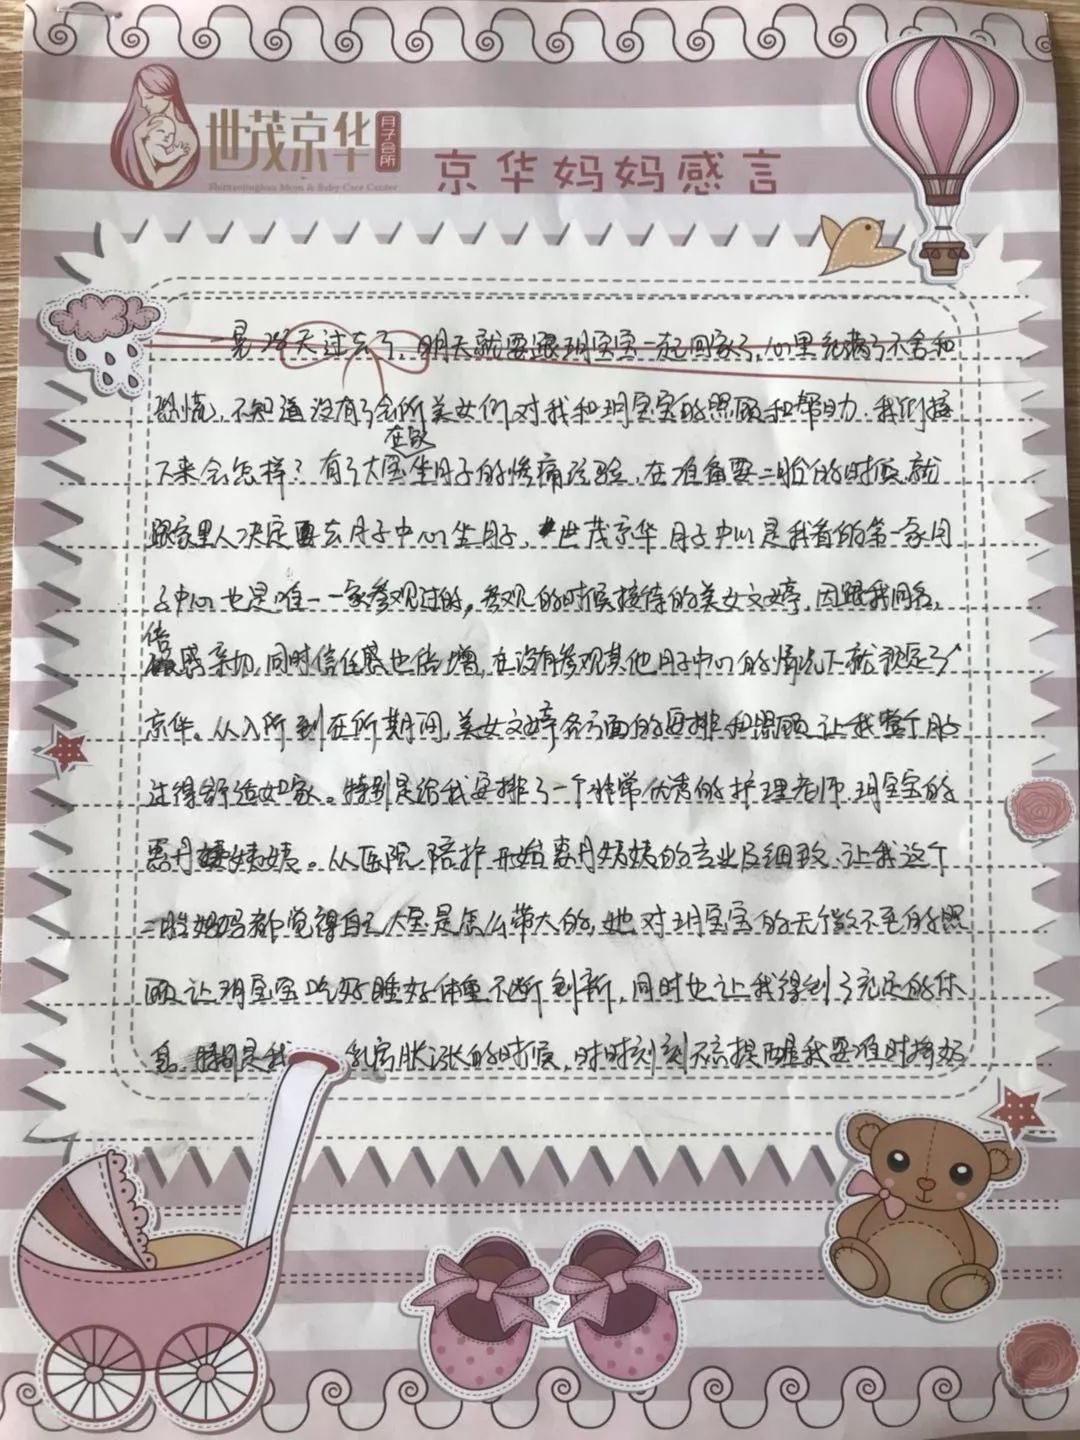 世茂京华
月子会所
Shimaojinghua Mom & Baby Care Center
京华妈妈感言
一晃28天过去了,明天就要跟玥宝宝一起回家了,心里充满了不舍和
恐慌,不知道没有了会所美女们对我和玥宝宝的照顾和帮助,我们接
在家
下来会怎样?有了大宝坐月子的惨痛经验,在准备要二胎的时候,就
跟家里人决定要去月子中心坐月子,世茂京华月子中心是我看的第一家月
子中心也是唯一一家参观过的,参观的时候接待的美女文婷,因跟我同名,
倍感亲切,同时信任感也倍增,在没有参观其他月子中心的情况下就预定了
京华。从入所到在所期间,美女文婷各方面的安排和照顾让我整个月子
过得舒适如家。特别是给我安排了一个非常优秀的护理老师,玥宝宝的
惠丹姨姨。从医院陪护开始惠丹姨姨的专业及细致,让我这个
二胎妈妈都觉得自己大宝是怎么带大的,她对玥宝宝的无微不至的照
顾让玥宝宝吃好睡好体重不断刷新,同时也让我得到了充足的休
息,特别是我 乳房胀涨的时候,时时刻刻不忘提醒我要准时排奶